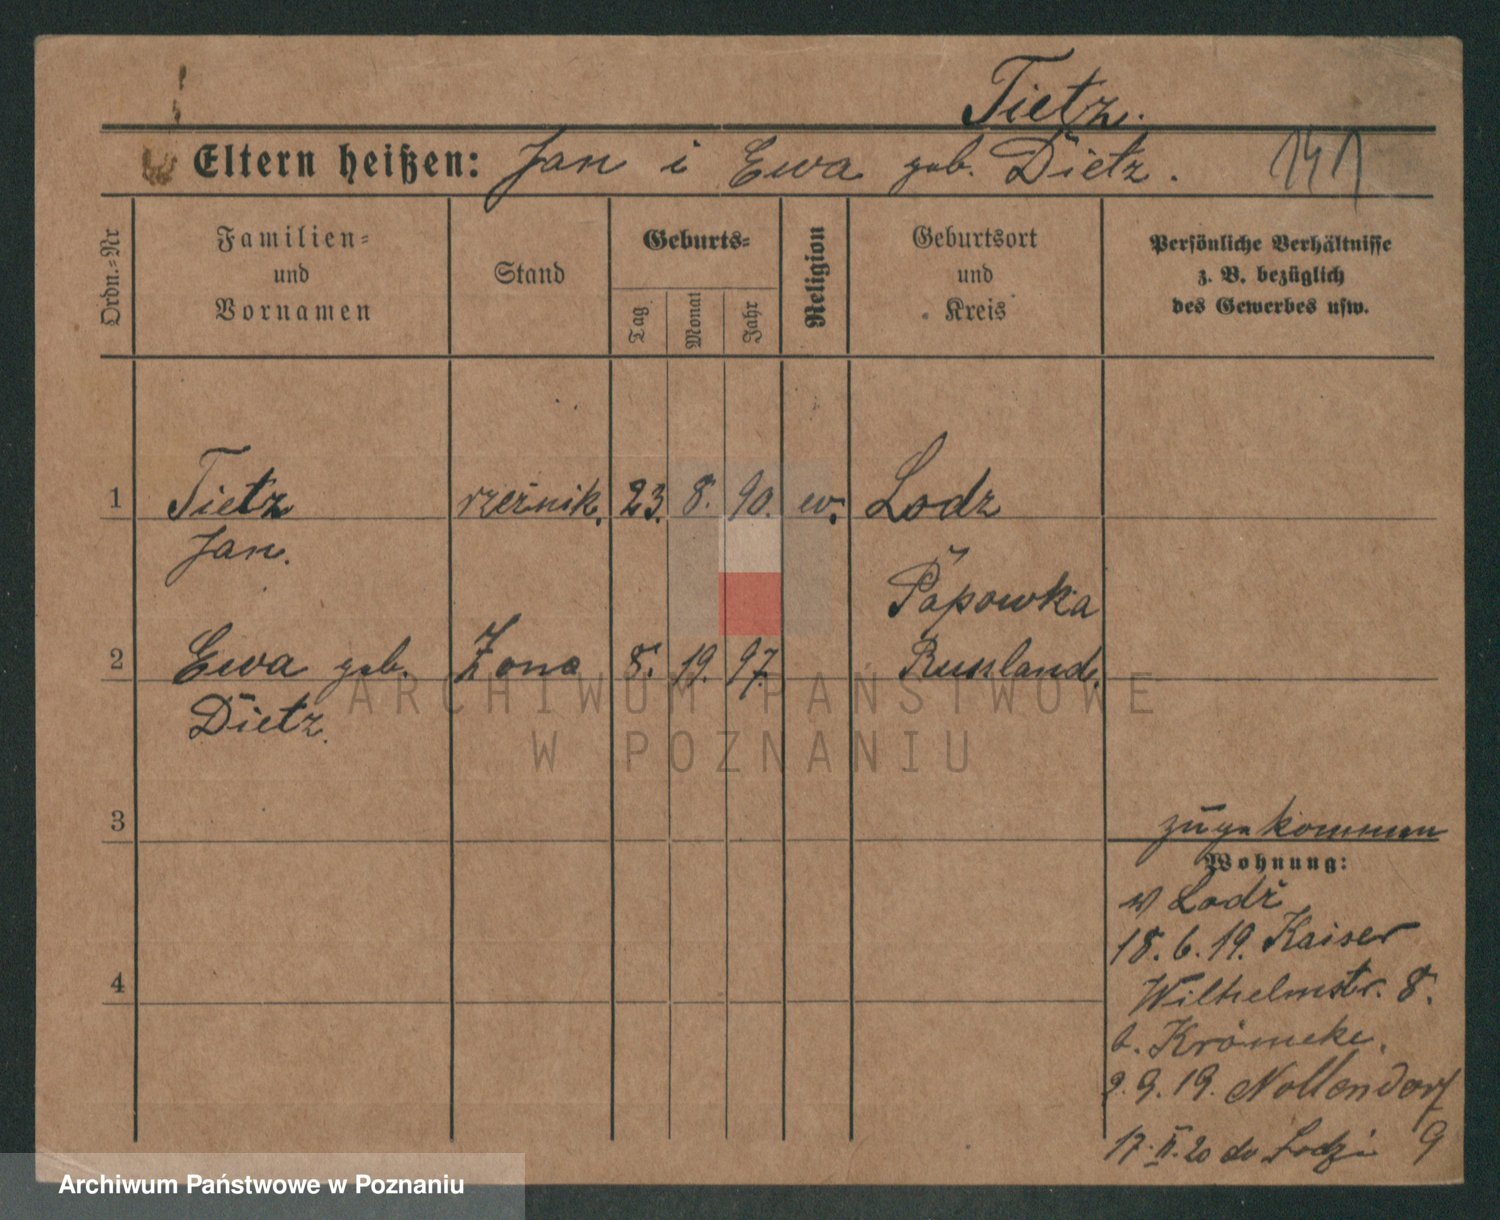 Tietz.
Eltern heißen: Jan i Ewa geb. Dietz.
141
Ordn.=Nr
Familien=
und
Vornamen
Stand
Geburts=
Tag
Monat
Jahr
Religion
Geburtsort
und
Kreis
Persönliche Verhältnisse
z. B. bezüglich
des Gewerbes usw.
1 Tietz rzeźnik. 23. 8. 90. ew. Lodz
Jan.
Papowka
2 Ewa geb. Żona 8. 19. 97. Russland.
Dietz.
ARCHIWUM PAŃSTWOWE
W POZNANIU
3
zugekommen
Wohnung:
w Lodź
18. 6. 19. Kaiser
4
Wilhelmstr. 8.
b. Krömeke.
2. 9. 19. Nollendorf
9
17. II. 20 do Lodzi
Archiwum Państwowe w Poznaniu